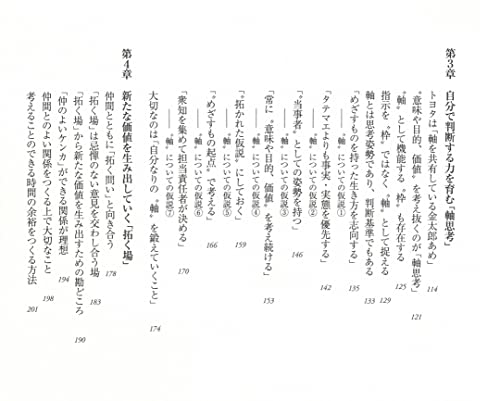 第3章 自分で判断する力を育む「軸思考」
トヨタは「軸を共有している金太郎あめ」 114
“意味や目的、価値”を考え抜くのが「軸思考」 121
“軸”として機能する“枠”も存在する 125
指示を“枠”ではなく“軸”として捉える 129
軸とは思考姿勢であり、判断基準でもある 133
「めざすものを持った生き方を志向する」
――“軸”についての仮説① 135
「タテマエよりも事実・実態を優先する」
――“軸”についての仮説② 142
「“当事者”としての姿勢を持つ」
――“軸”についての仮説③ 146
「常に“意味や目的、価値”を考え続ける」
――“軸”についての仮説④ 153
「拓かれた仮説”にしておく」
――“軸”についての仮説⑤ 159
「“めざすもの起点”で考える」
――“軸”についての仮説⑥ 166
「衆知を集めて担当責任者が決める」
――“軸”についての仮説⑦ 170
大切なのは「自分なりの“軸”を鍛えていくこと」 174
第4章 新たな価値を生み出していく「拓く場」
仲間とともに「拓く問い」と向き合う 178
「拓く場」は忌憚のない意見を交わし合う場 183
「拓く場」から新たな価値を生み出すための勘どころ 190
「仲のよいケンカ」ができる関係が理想 194
仲間とのよい関係をつくる上で大切なこと 198
考えることのできる時間の余裕をつくる方法 201